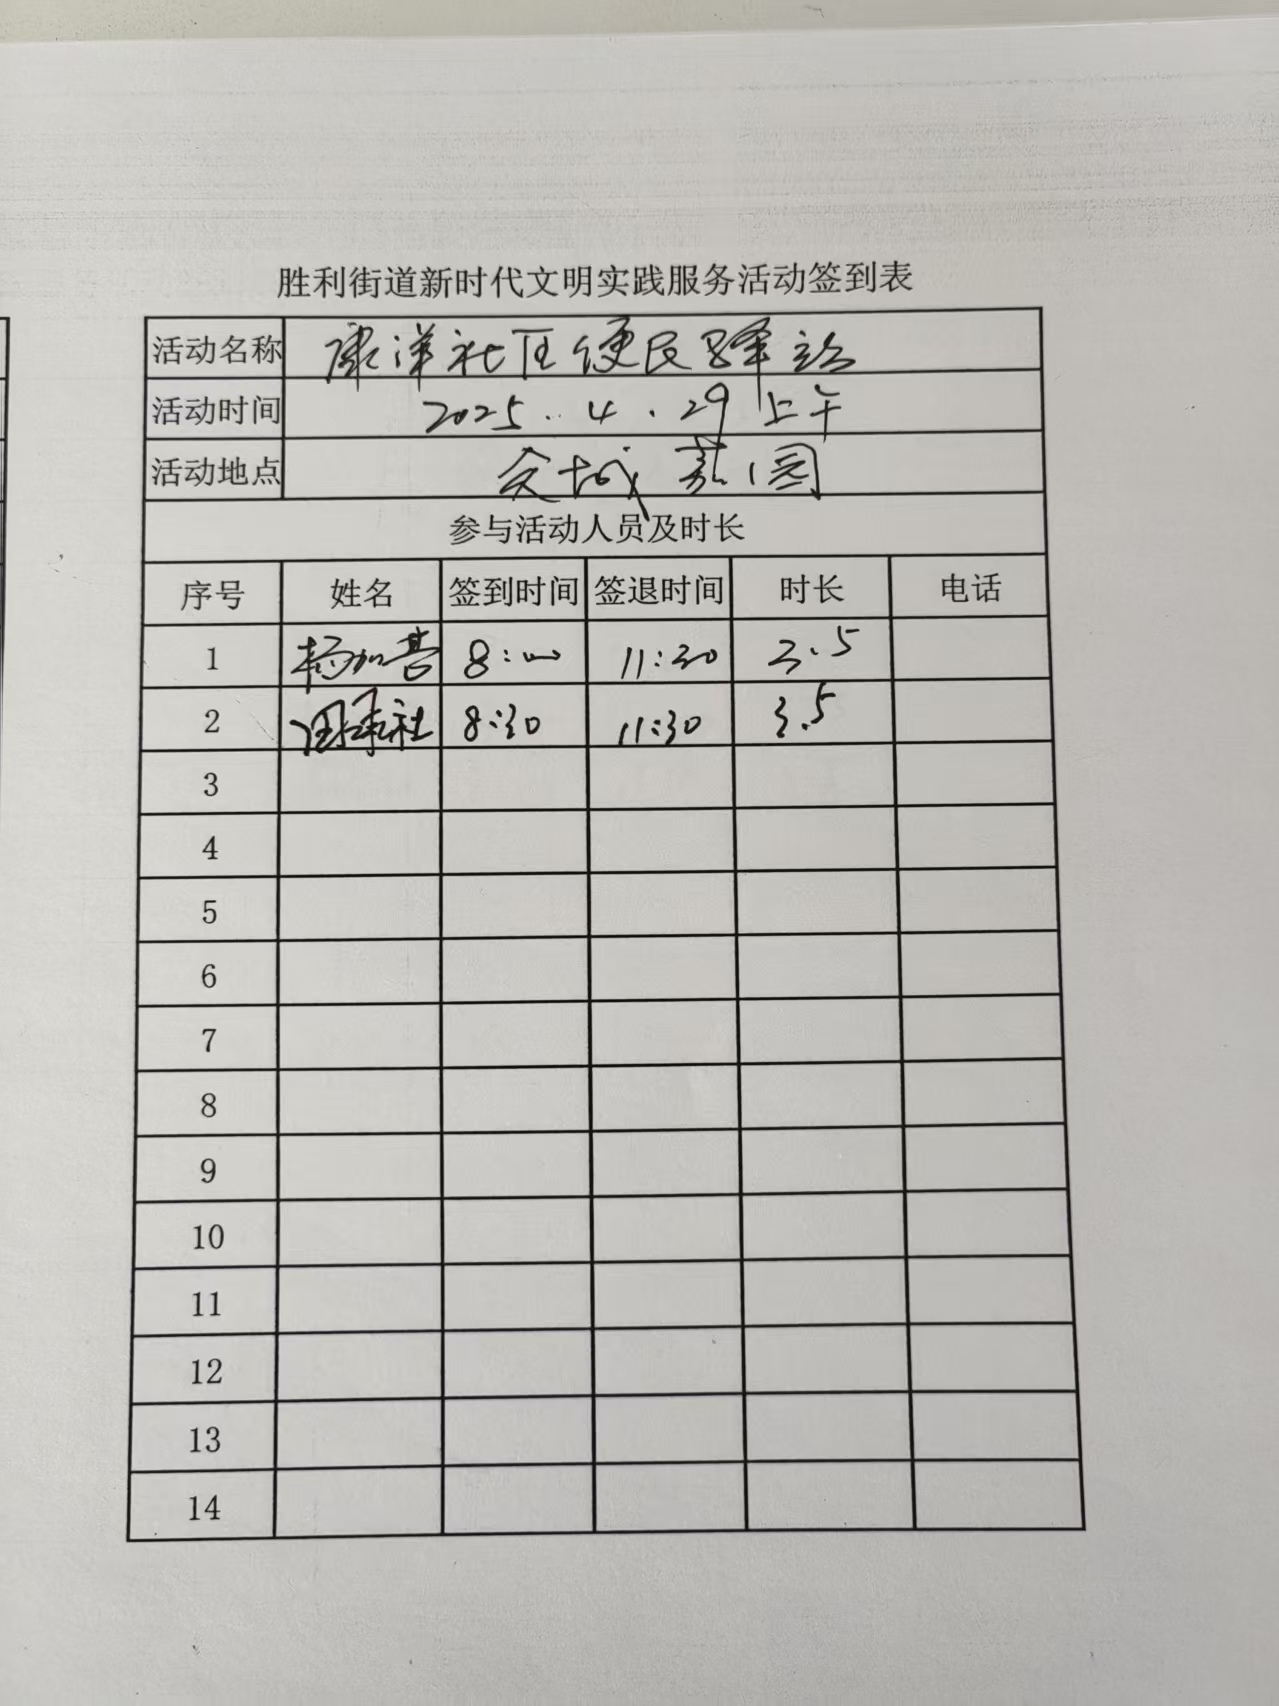 胜利街道新时代文明实践服务活动签到表
活动名称 康洋社区便民驿站
活动时间 2025.4.29上午
活动地点 文城嘉园
参与活动人员及时长
序号 姓名 签到时间 签退时间 时长 电话
1 8:00 11:30 3.5
2 8:30 11:30 3.5
3
4
5
6
7
8
9
10
11
12
13
14